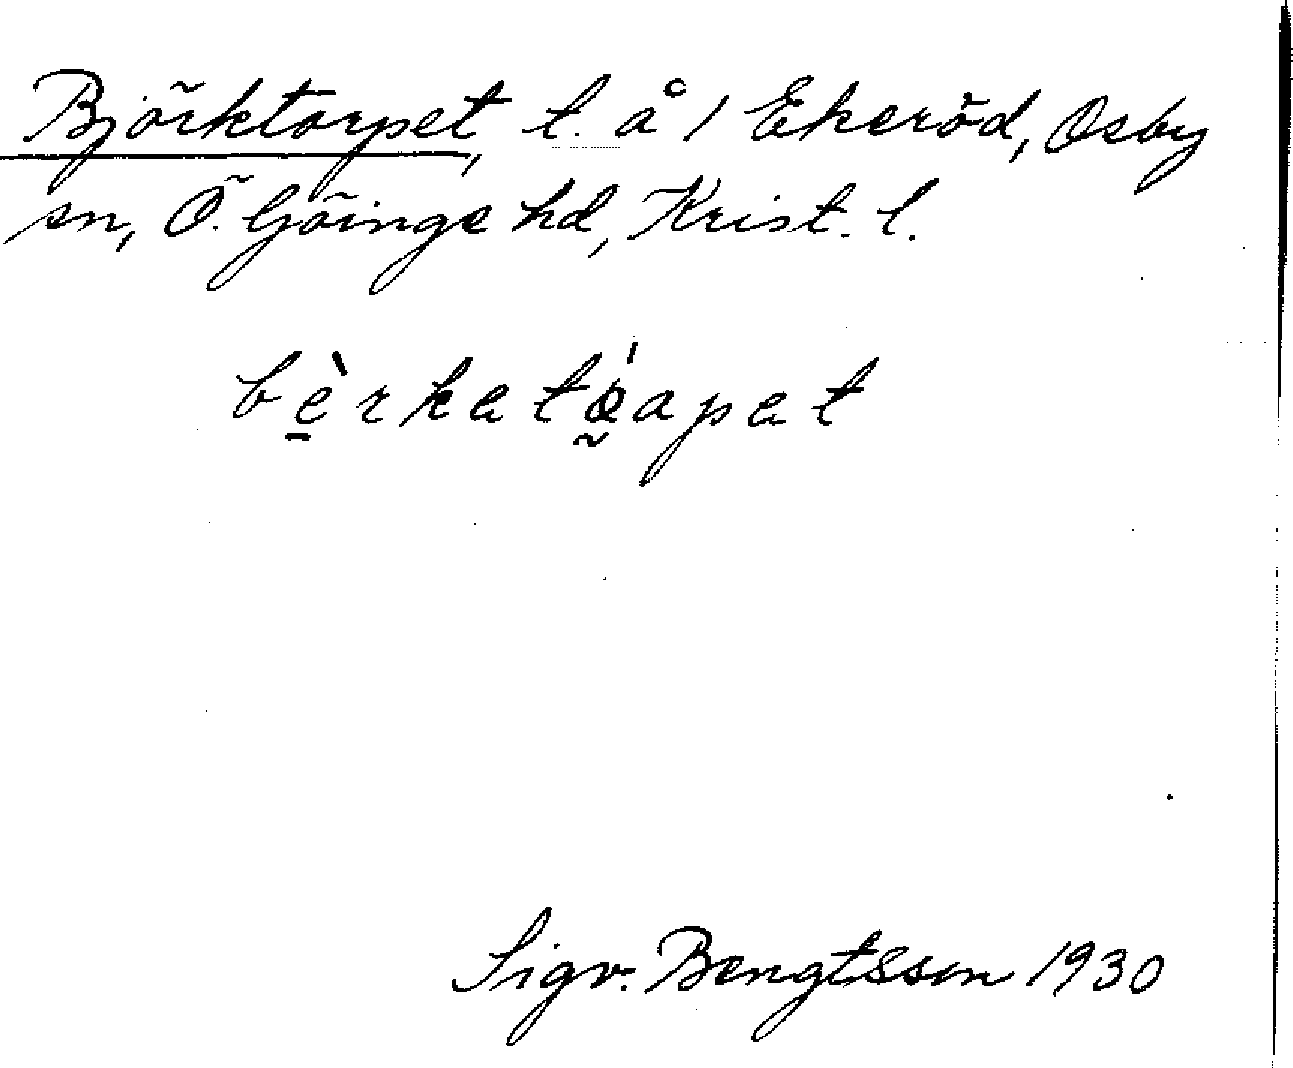 Björktorpet, t. å 1 Ekeröd, Osby
sn, Ö. Göinge hd, Krist. l.
bè̠rkatǿ̰apat
Sigv. Bengtsson 1930